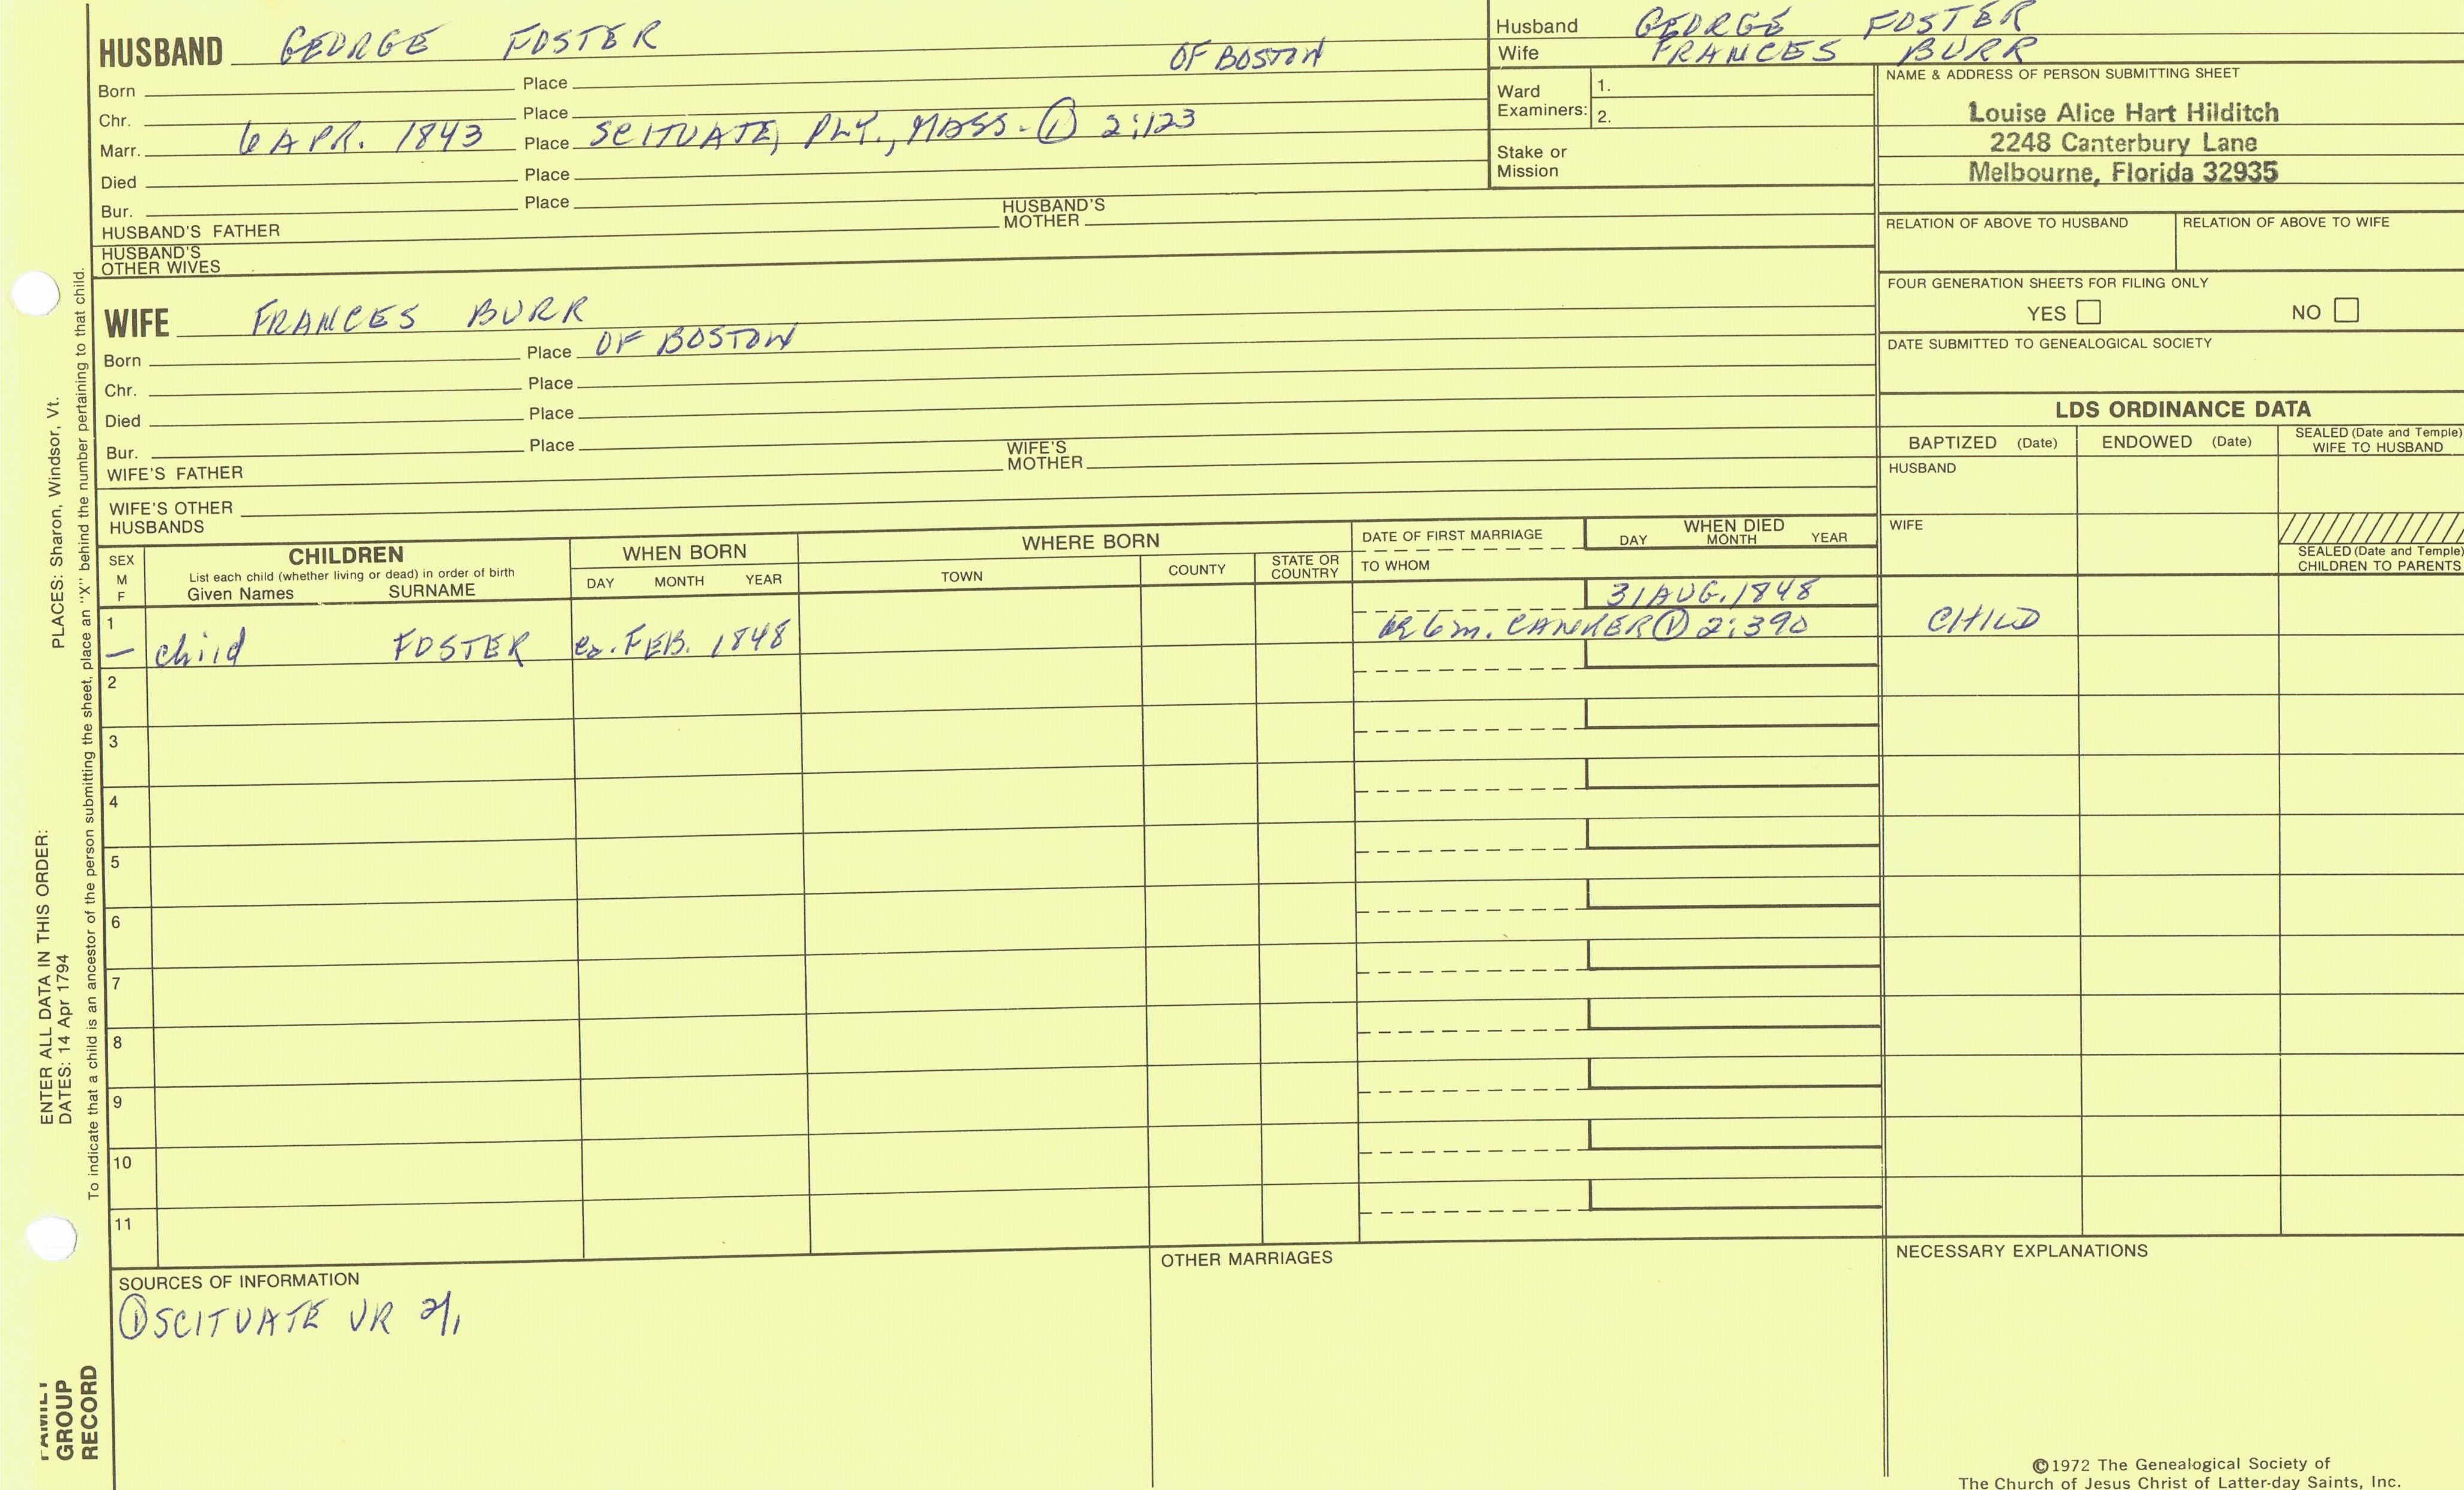 HUSBAND GEORGE FOSTER
OF BOSTON
Born Place
Chr. Place
Marr. 6 APR. 1843 Place SCITUATE, PLY., MASS. ① 2:123
Died Place
Bur. Place
HUSBAND'S FATHER HUSBAND'S MOTHER
HUSBAND'S OTHER WIVES
Husband GEORGE FOSTER
Wife FRANCES BURR
Ward Examiners: 1.
2.
Stake or Mission
NAME & ADDRESS OF PERSON SUBMITTING SHEET
Louise Alice Hart Hilditch
2248 Canterbury Lane
Melbourne, Florida 32935
RELATION OF ABOVE TO HUSBAND RELATION OF ABOVE TO WIFE
FOUR GENERATION SHEETS FOR FILING ONLY
YES NO
DATE SUBMITTED TO GENEALOGICAL SOCIETY
WIFE FRANCES BURR
Born Place OF BOSTON
Chr. Place
Died Place
Bur. Place
WIFE'S FATHER WIFE'S MOTHER
WIFE'S OTHER HUSBANDS
LDS ORDINANCE DATA
BAPTIZED (Date) ENDOWED (Date) SEALED (Date and Temple) WIFE TO HUSBAND
HUSBAND
WIFE
SEALED (Date and Temple) CHILDREN TO PARENTS
SEX M F
CHILDREN
List each child (whether living or dead) in order of birth
Given Names SURNAME
WHEN BORN
DAY MONTH YEAR
WHERE BORN
TOWN COUNTY STATE OR COUNTRY
DATE OF FIRST MARRIAGE
TO WHOM
WHEN DIED
DAY MONTH YEAR
31 AUG. 1848
1 – child FOSTER ca. FEB. 1848 6 m. CANKER ① 2:390 CHILD
2
3
4
5
6
7
8
9
10
11
SOURCES OF INFORMATION
① SCITUATE VR 2/1
OTHER MARRIAGES
NECESSARY EXPLANATIONS
©1972 The Genealogical Society of
The Church of Jesus Christ of Latter-day Saints, Inc.
ENTER ALL DATA IN THIS ORDER:
DATES: 14 Apr 1794 PLACES: Sharon, Windsor, Vt.
To indicate that a child is an ancestor of the person submitting the sheet, place an "X" behind the number pertaining to that child.
FAMILY
GROUP
RECORD